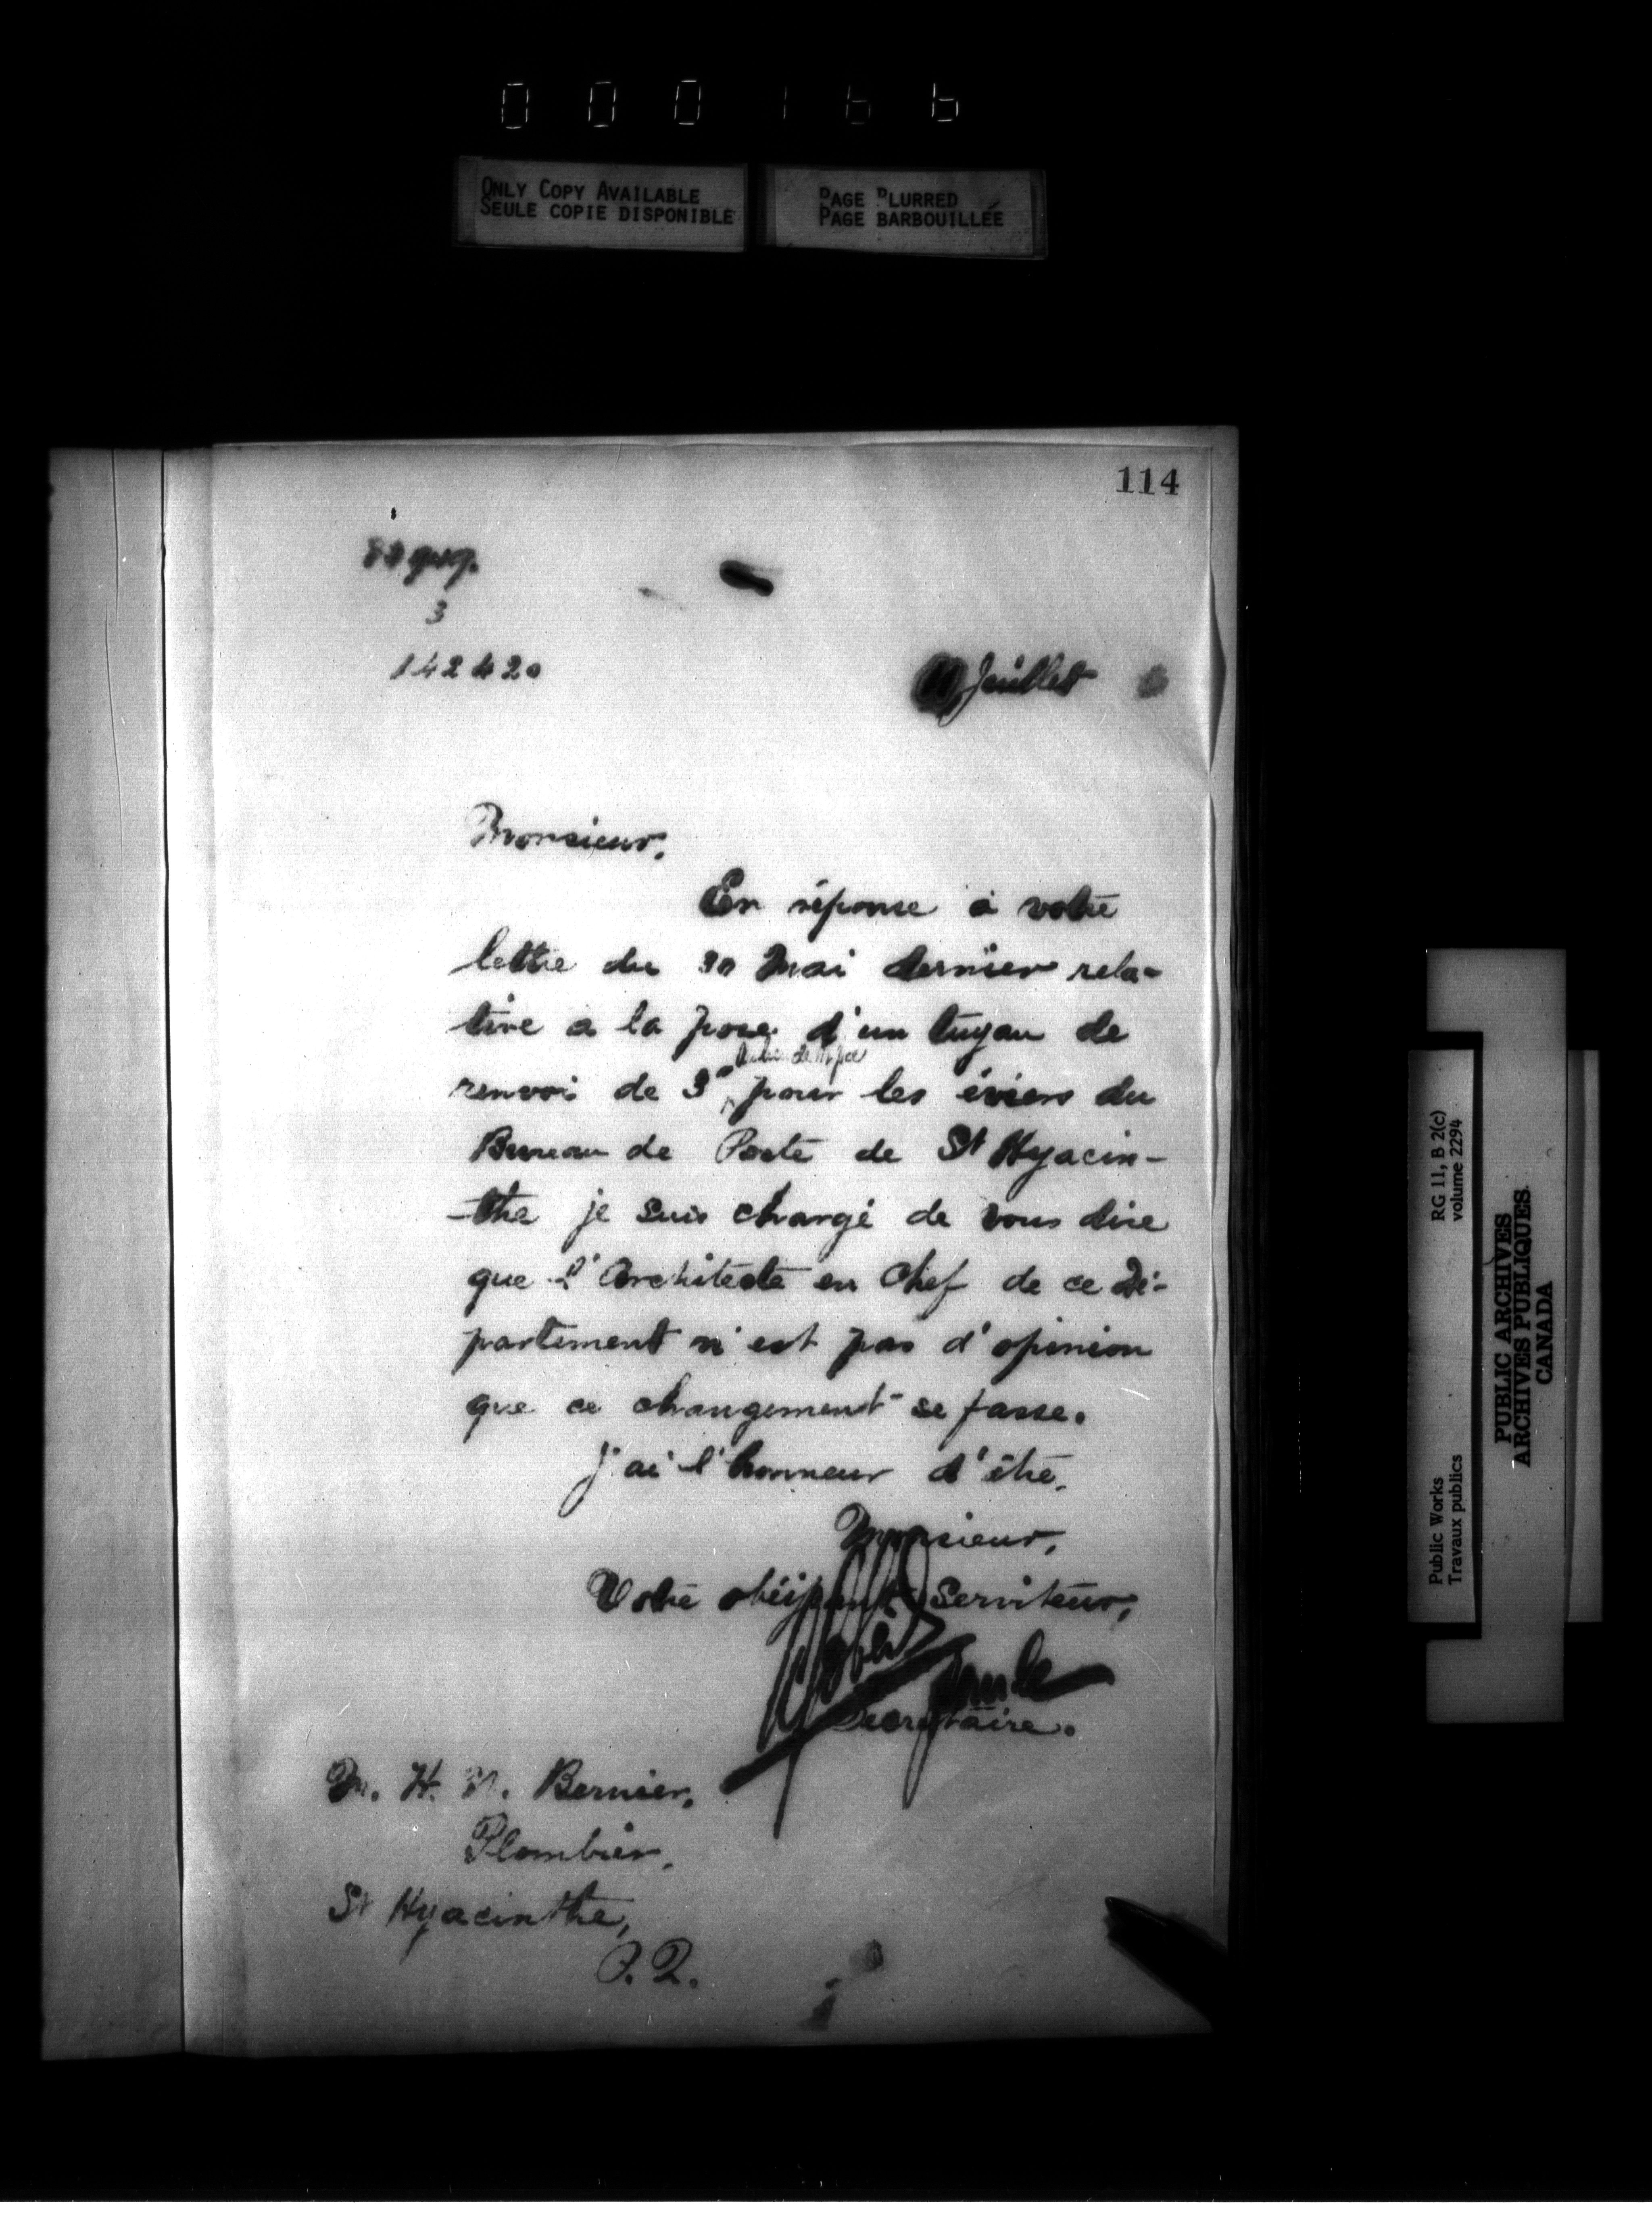 000166
ONLY COPY AVAILABLE
SEULE COPIE DISPONIBLE
PAGE BLURRED
PAGE BARBOUILLÉE
114
3
142420
Juillet
Monsieur,
En réponse à votre
lettre du 30 Mai dernier rela-
tive a la pose d'un tuyau de
renvoi de 3" pour les éviers du
Bureau de Poste de St Hyacin-
-the je suis chargé de vous dire
que l'Architecte en Chef de ce Dé-
partement n'est pas d'opinion
que ce changement se fasse.
J'ai l'honneur d'être,
Monsieur,
Votre obéissant Serviteur,
Secrétaire.
M. H. N. Bernier,
Plombier,
St Hyacinthe,
P.Q.
Public Works
Travaux publics
RG 11, B 2(c)
volume 2294
PUBLIC ARCHIVES
ARCHIVES PUBLIQUES
CANADA